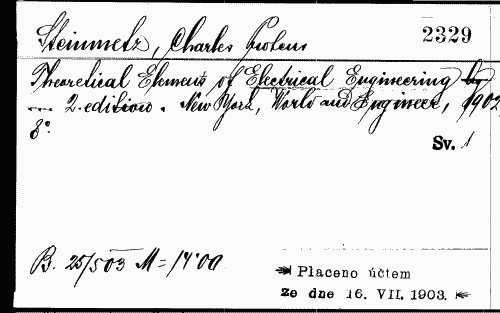 Steinmetz, Charles Proteus 2329
Theoretical Elements of Electrical Engineering by
2. edition. New York, World and Engineer, 1902
8°.
Sv. 1
B. 25/503 M = 14.00
Placeno účtem
Ze dne 16. VII. 1903.